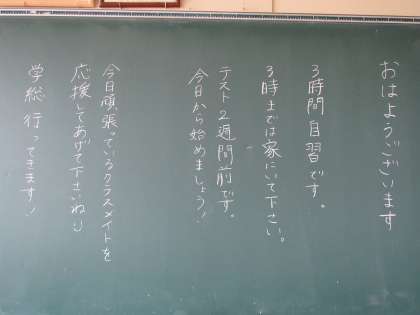 おはようございます
3時間自習です。
3時までは家にいて下さい。
テスト2週間前です。
今日から始めましょう!
今日頑張っているクラスメイトを
応援してあげて下さいね!)
学総行ってきます!